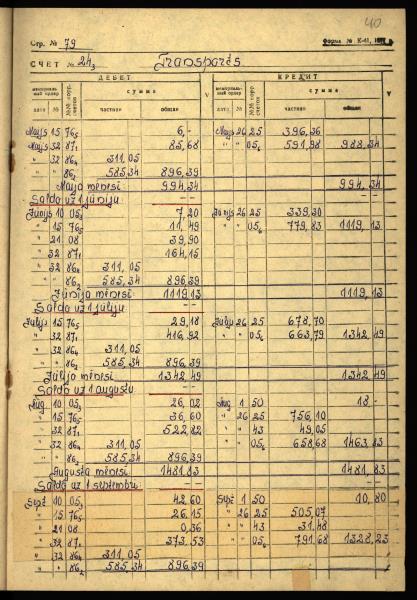 40
Стр. № 79 Форма № К-41,
СЧЕТ № 24₃ Transports
ДЕБЕТ КРЕДИТ
мемориальный ордер №№ корр. счетов сумма V мемориальный ордер №№ корр. счетов сумма V
дата № частная общая дата № частная общая
Maijs 15 76₅ 6,- Maijs 26 25 396,36
Maijs 32 87₁ 85,68 " " 05₆ 591,98 988,34
" 32 86₄ 311,05
" " 86₂ 585,34 896,39
Maija mēnesī 994,34 994,34
Saldo uz 1 jūniju -- --
Jūnijs 10 05₃ 7,20 Jūnijs 26 25 339,30
" 15 76₅ 11,49 " " 05₆ 779,83 1119,13
" 21 08 39,90
" 32 87₁ 164,15
" 32 86₄ 311,05
" " 86₂ 585,34 896,39
Jūnija mēnesī 1119,13 1119,13
Saldo uz 1 jūliju -- --
Jūlijs 15 76₅ 29,18 Jūlijs 26 25 678,70
" 32 87₁ 416,92 " " 05₆ 663,79 1342,49
" 32 86₄ 311,05
" " 86₂ 585,34 896,39
Jūlija mēnesī 1342,49 1342,49
Saldo uz 1 augustu -- --
Aug. 10 05₃ 26,02 Aug. 1 50 18-
" 15 76₅ 36,60 " 26 25 756,10
" 32 87₁ 522,82 " " 43 49,05
" 32 86₄ 311,05 " " 05₆ 658,68 1463,83
" " 86₂ 585,34 896,39
Augusta mēnesī 1481,83 1481,83
Saldo uz 1 septembri -- --
Sept 10 05₃ 42,60 Sept 1 50 10,80
" 15 76₅ 26,15 " 26 25 505,07
" 21 08 0,36 " " 43 31,48
" 32 87₁ 373,53 " " 05₆ 791,68 1328,23
" 32 86₄ 311,05
" " 86₂ 585,34 896,39